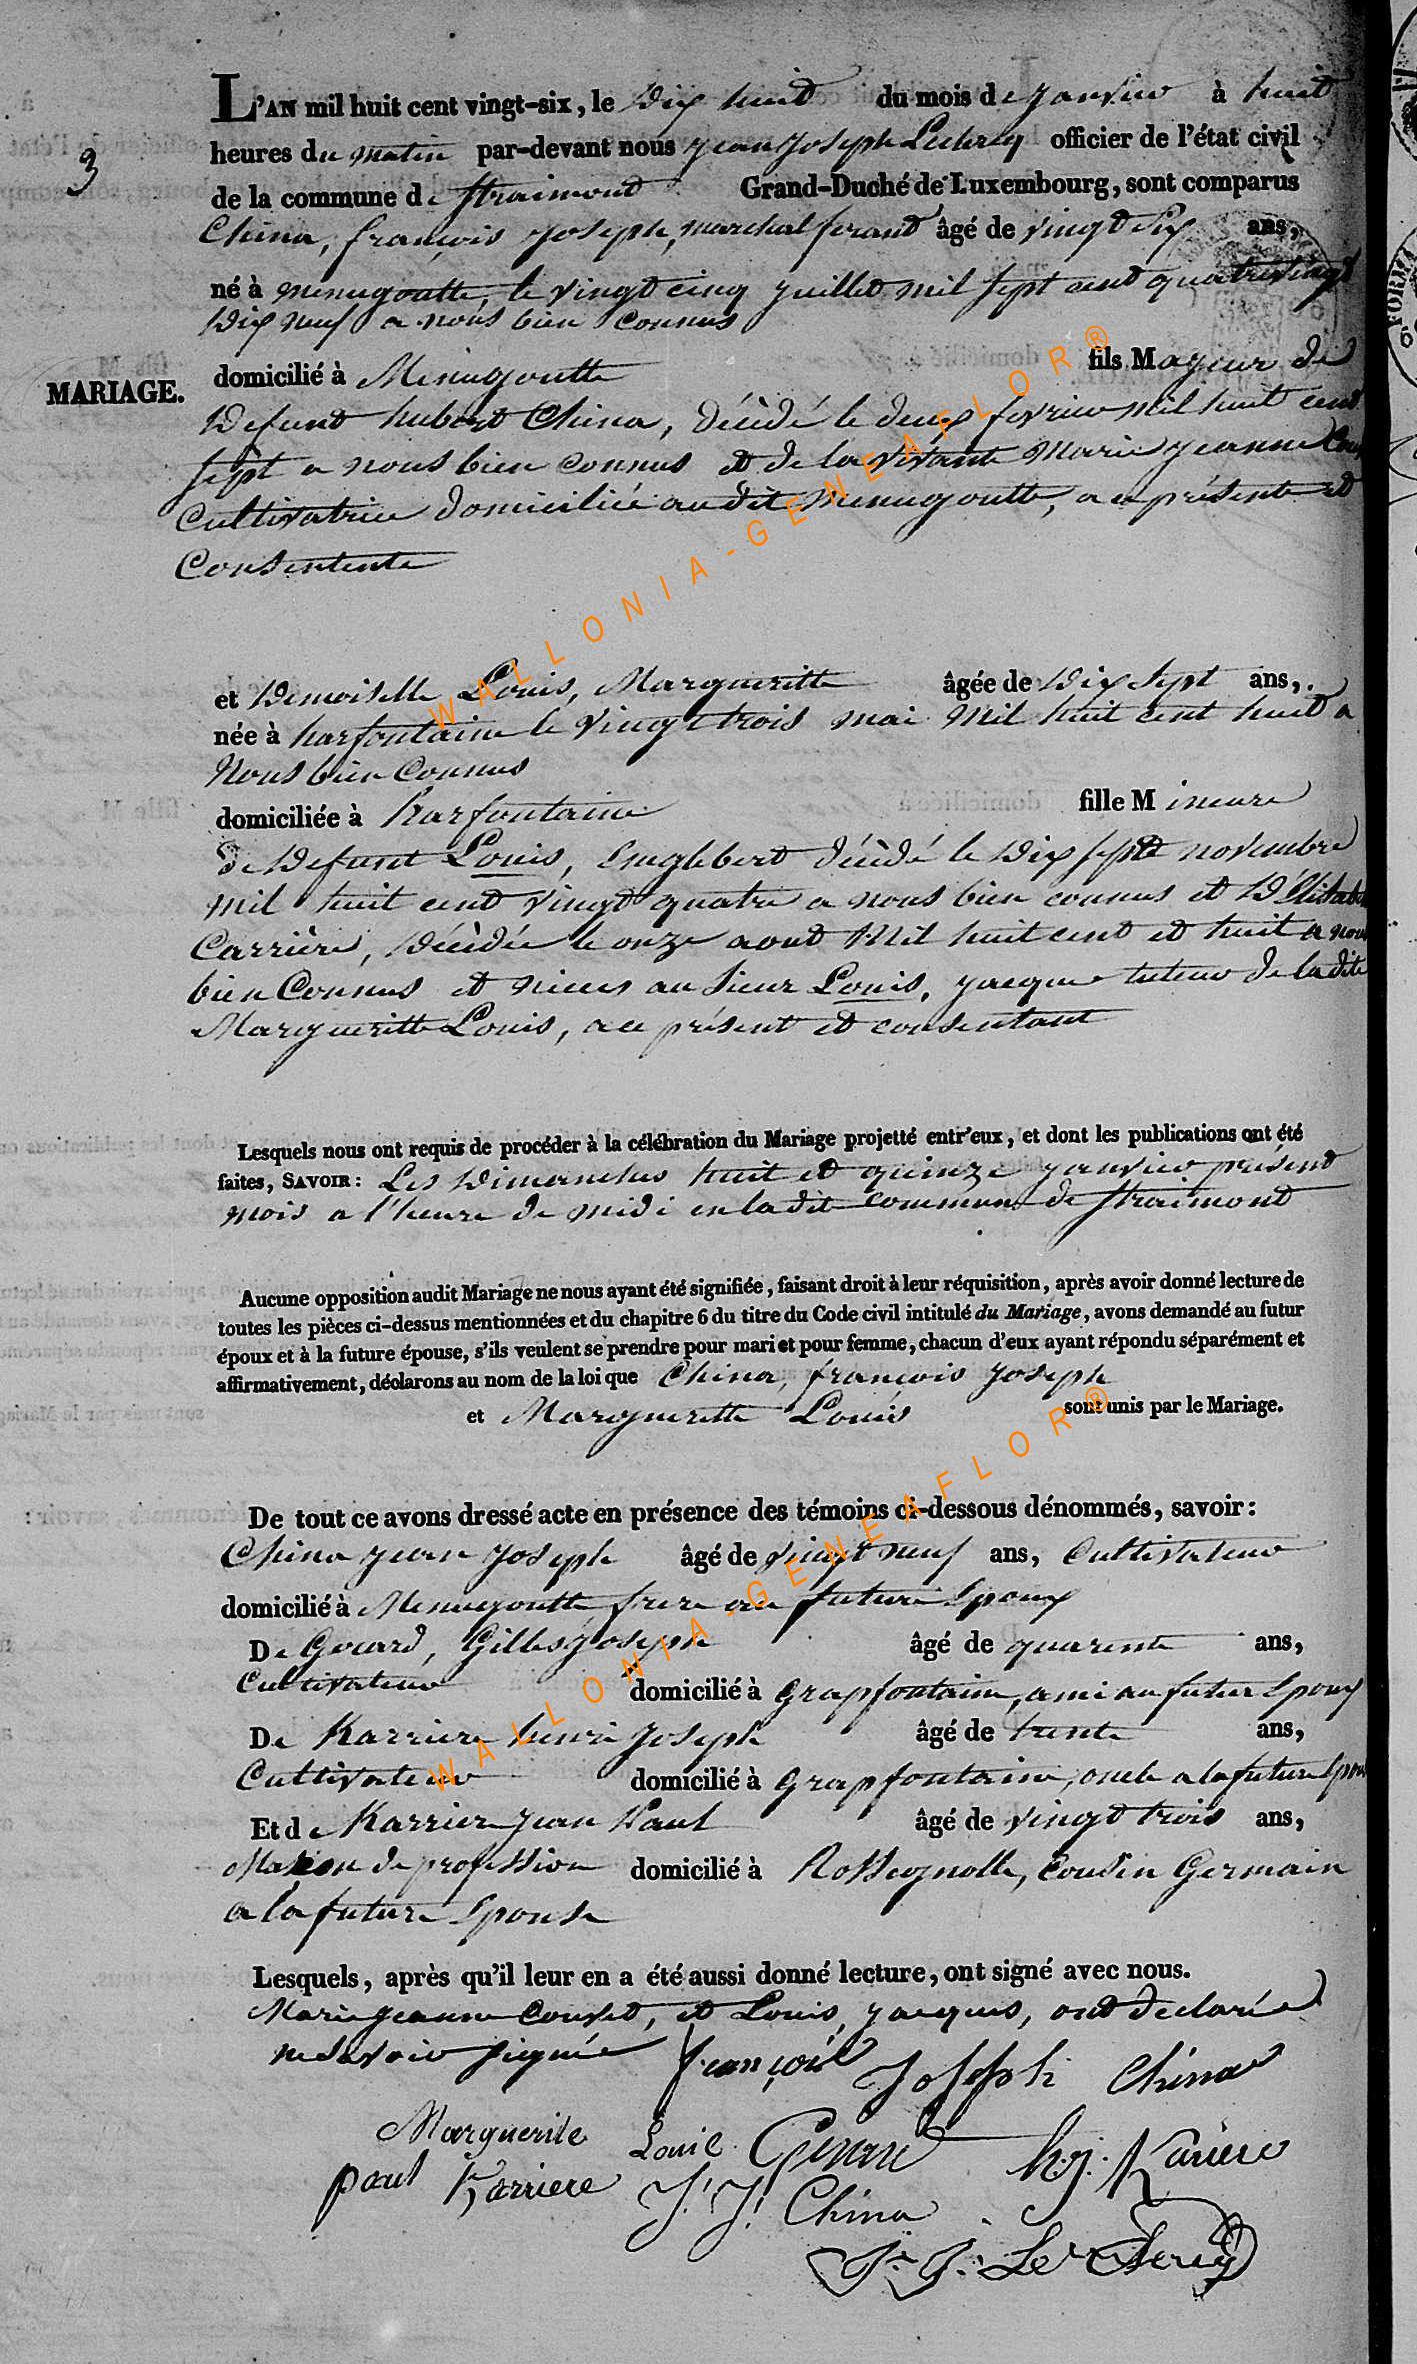 L'AN mil huit cent vingt-six, le Dix huit du mois de janvier à huit
heures du matin par-devant nous jean joseph Leclercq officier de l'état civil
3
de la commune de straimont Grand-Duché de Luxembourg, sont comparus
China, françois joseph, marchal ferant âgé de vingt six ans,
né à menugoutte, le vingt cinq juillet mil sept cent quatre vingt
Dix neuf a nous bien connus
domicilié à Menugoutte fils Majeur de
MARIAGE.
Defunt hubert China, décédé le deux fevrier mil huit cent
sept a nous bien connus et de la vivante Marie jeanne
Cultivatrice domiciliée audit menugoutte, a ce présente et
Consentente
et Demoiselle Louis, Margueritte âgée de Dix sept ans,
née à harfontaine le vingt trois mai mil huit cent huit a
Nous bien Connus
domiciliée à harfontaine fille Mineure
de Defunt Louis, Englebert décédé le Dix sept novembre
mil huit cent vingt quatre a nous bien connus et D'Elisabet
Carrière, Décédée le onze aout Mil huit cent et huit a nous
bien Connus et nieces au sieur Louis, jacque tuteur de ladite
Margueritte Louis, a ce présent et consentant
Lesquels nous ont requis de procéder à la célébration du Mariage projetté entr'eux, et dont les publications ont été
faites, SAVOIR : Les Dimanches huit et quinze janvier présent
mois a l'heure de midi en ladite commune de straimont
Aucune opposition audit Mariage ne nous ayant été signifiée, faisant droit à leur réquisition, après avoir donné lecture de
toutes les pièces ci-dessus mentionnées et du chapitre 6 du titre du Code civil intitulé du Mariage, avons demandé au futur
époux et à la future épouse, s'ils veulent se prendre pour mari et pour femme, chacun d'eux ayant répondu séparément et
affirmativement, déclarons au nom de la loi que China, françois joseph
et Margueritte Louis sont unis par le Mariage.
De tout ce avons dressé acte en présence des témoins ci-dessous dénommés, savoir :
China jean joseph âgé de vingt neuf ans, Cultivateur
domicilié à Menugoutte frere au future Epoux
De Gerard, Gilles joseph âgé de quarente ans,
Cultivateur domicilié à Grapfontaine, ami au futur Epoux
De Karriere henri joseph âgé de trente ans,
Cultivateur domicilié à Grapfontaine, oncle a la future
Et de Karrier jean Paul âgé de vingt trois ans,
Masson de profession domicilié à Rossegnolle, Cousin Germain
a la future Epouse
Lesquels, après qu'il leur en a été aussi donné lecture, ont signé avec nous.
Marie jeanne Couset, et Louis, jacques, ont declarée
ne savoir signée françois Joseph China
Marguerite Louis Gerard h.j. Kariere
paul Karriere J. J. China
J. J. Le Clercq
WALLONIA-GENEAFLOR®
WALLONIA-GENEAFLOR®